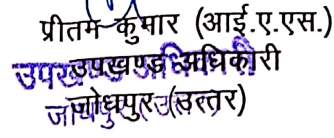 प्रीतम कुमार (आई.ए.एस.)
उपखण्ड अधिकारी
जोधपुर (उत्तर)